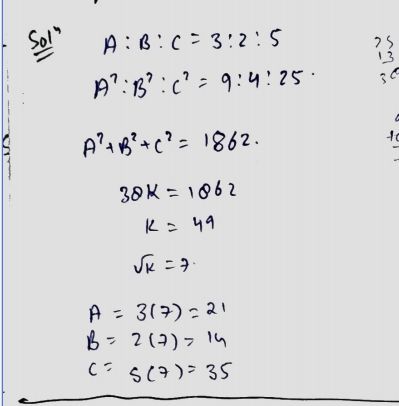 Solⁿ A : B : C = 3 : 2 : 5
A² : B² : C² = 9 : 4 : 25.
A² + B² + C² = 1862.
38K = 1862
K = 49
√K = 7.
A = 3(7) = 21
B = 2(7) = 14
C = 5(7) = 35
25
13